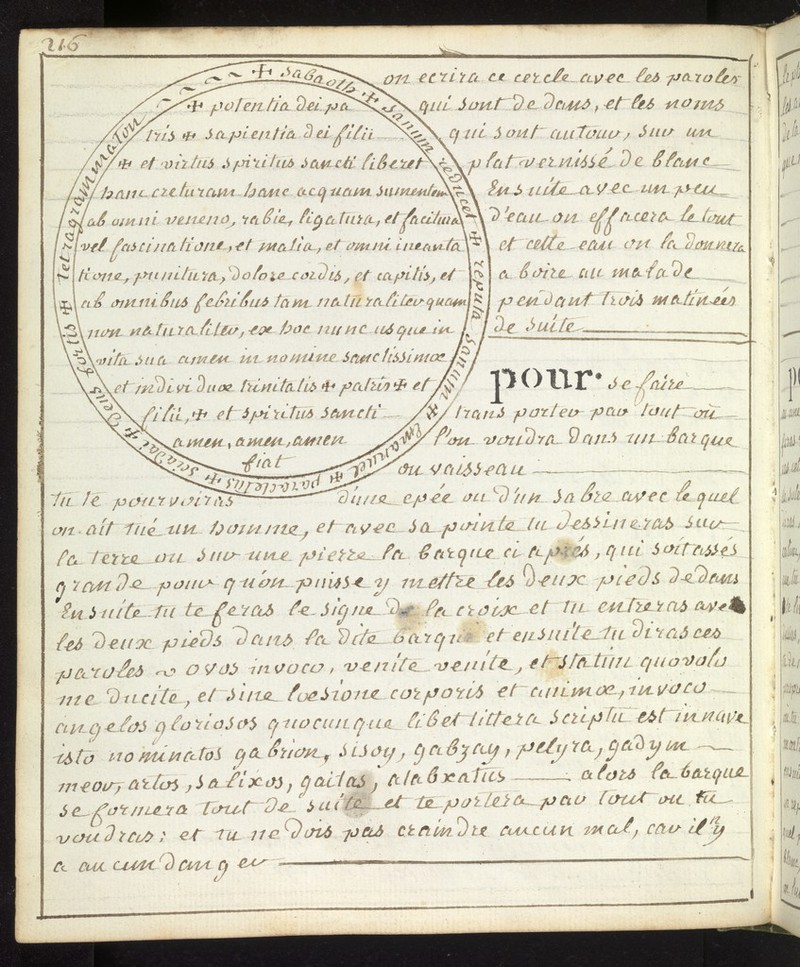 216
✠ Sabaoth ✠ Sanum reducet ✠ reputa Sanum ✠ Emanuel ✠ paracletus ✠ Saddai ✠ Deus fortis ✠ tetragrammaton
✠ potentia dei pa
tris ✠ sapientia dei filii
✠ et virtus spiritus sancti liberet
hanc creturam hanc acquam sumentem
ab omni veneno, rabie, ligatura, et facitura
vel fascinatione, et malia, et omni incanta
tione, punitura, dolore cordis, et capitis, et
ab omnibus febribus tam naturaliter quam
non naturaliter, ex hoc nunc usque in
vita sua amen in nomine sanctissimæ
et individuæ trinitatis ✠ patris ✠ et
filii, ✠ et spiritus sancti
amen, amen, amen
fiat
on ecrira ce cercle avec les paroles
qui sont de dans, et les noms
qui sont autour, sur un
plat vernissé de blanc
Ensuite avec un peu
d'eau on effacera le tout
et cette eau on la donnera
a boire au malade
pendant trois matinées
de suite
pour se faire
transporter par tout où
l'on voudra dans un barque
ou vaisseau
tu te pourvoiras d'une epée ou d'un sabre avec lequel
on ait tué un homme, et avec sa pointe tu dessineras sur
la terre ou sur une pierre la barque ci aprés, qui soit assés
grande pour qu'on puisse y mettre les deux pieds dedans
Ensuite tu te feras le signe de la croix et tu entreras avec
les deux pieds dans la dite barque et ensuite tu diras ces
paroles ~ O vos invoco, venite venite, et statim quo volo
me ducite, et sine læsione corporis et animæ, invoco
angelos gloriosos quocunque libet littera scriptu est in nave
isto nominatos gabrion, sisoy, gabzay, pelyra, gadym
meor, artos, salixos, gaitas, atabxatus alors la barque
se formera tout de suite et te portera par tout ou tu
voudras; et tu ne dois pas craindre aucun mal, car il n'y
a aucun danger